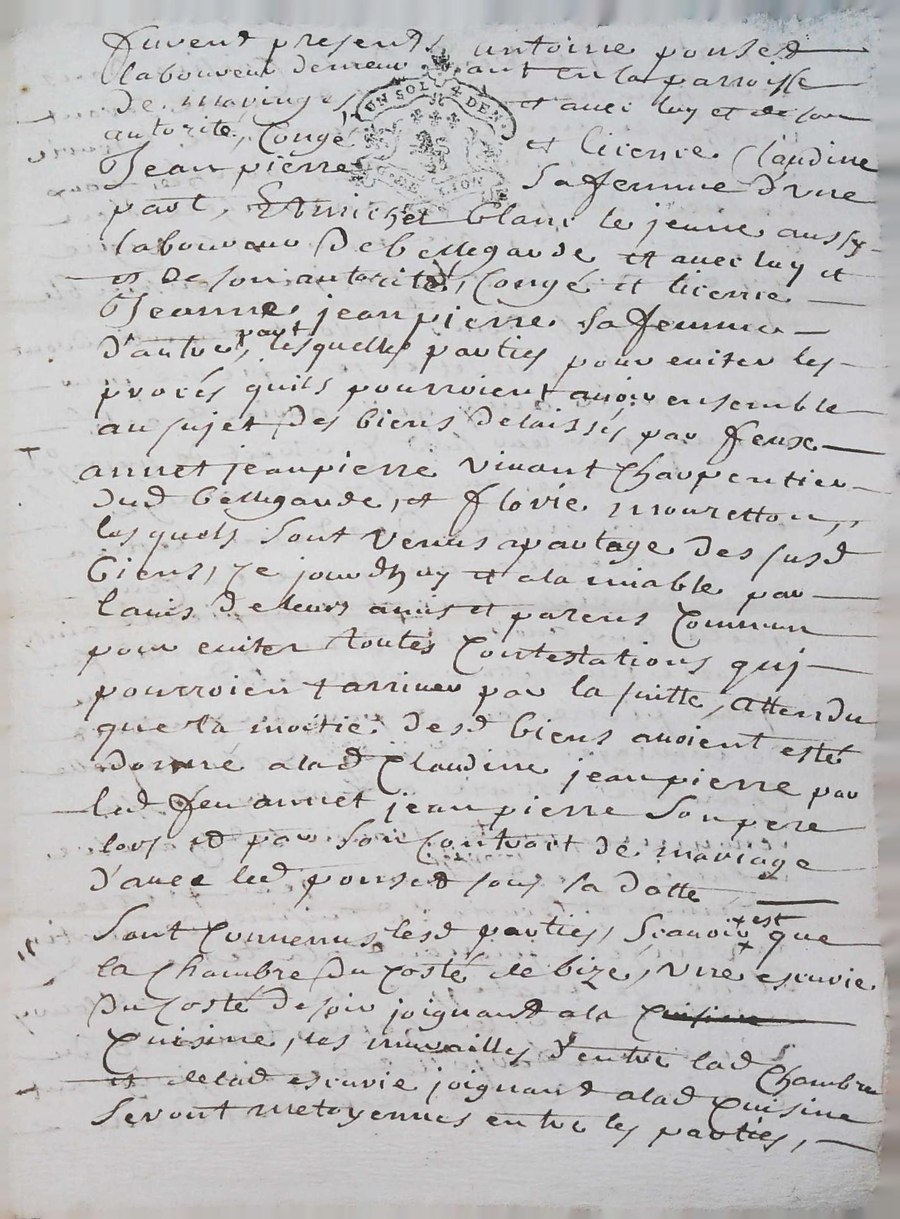 furent presents antoine ponsed
laboureur demeurant en la parroisse
de maringes et avec luy et de son
autorité, Congé et licence Claudine
Jeanpierre sa femme d'une
UN SOL 4 DEN.
G. DE LION
part, Et michel blanc le jeune aussy
laboureur de bellegarde et avec luy et
et de son autorité, Congé et licence
Jeanne jeanpierre sa femme
d'autre part, lesquelles parties pour eviter les
procés quils pourroient avoir ensemble
au sujet des biens delaissés par feux
annet jeanpierre vivant Charpentier
dud bellegarde, et florie mouretton,,
lesquels sont venus a partage des susd
biens, ce jourdhuy et a lamiable par
lavis de leurs amis et parens Commun
pour eviter toutes Contestations qui
pourroient arriver par la suitte, attendu
que la moitié desd biens avoient esté
donné a lad Claudine jeanpierre par
led feu annet jeanpierre son pere
lors et par son Contract de mariage
d'avec led ponsed sous sa datte
Sont Convenus lesd parties, Scavoir est que
la Chambre du costé de bize, une escurie
du costé de soir joignant a la Cuisine
Cuisine, les murailles d'entre lad Chambre
et de lad escurie joignant a lad Cuisine
Seront metoyennes entre les parties,